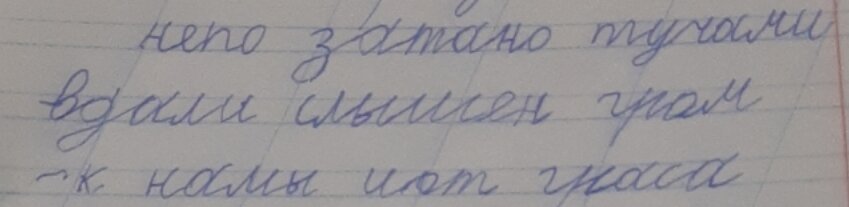 непо затано тучами
вдали слышен гром
-к намы иот граса